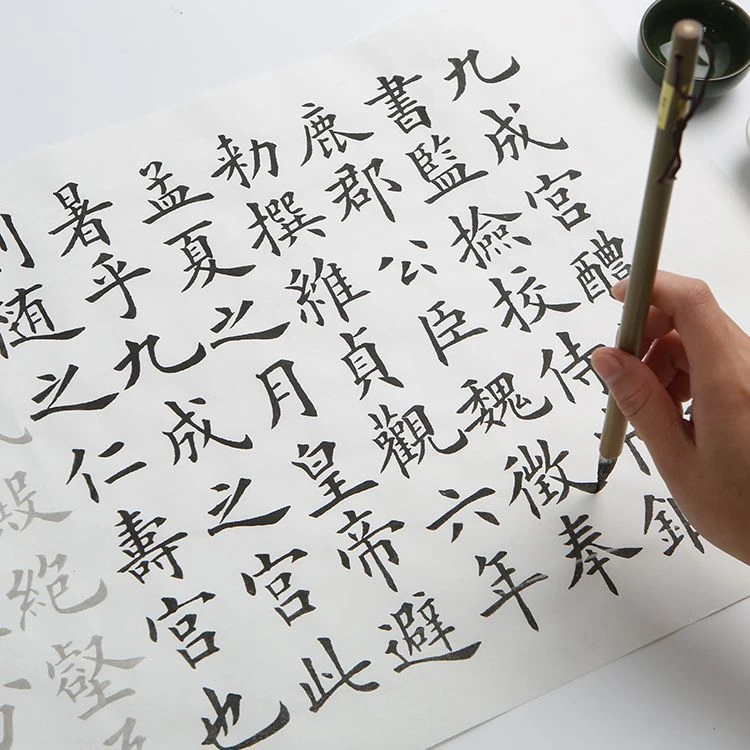 九成宮醴
書監撿挍侍中
鹿郡公臣魏徵奉
勑撰維貞觀六年
孟夏之月皇帝避
暑乎九成之宮此
随之仁壽宮也
殿絕壑